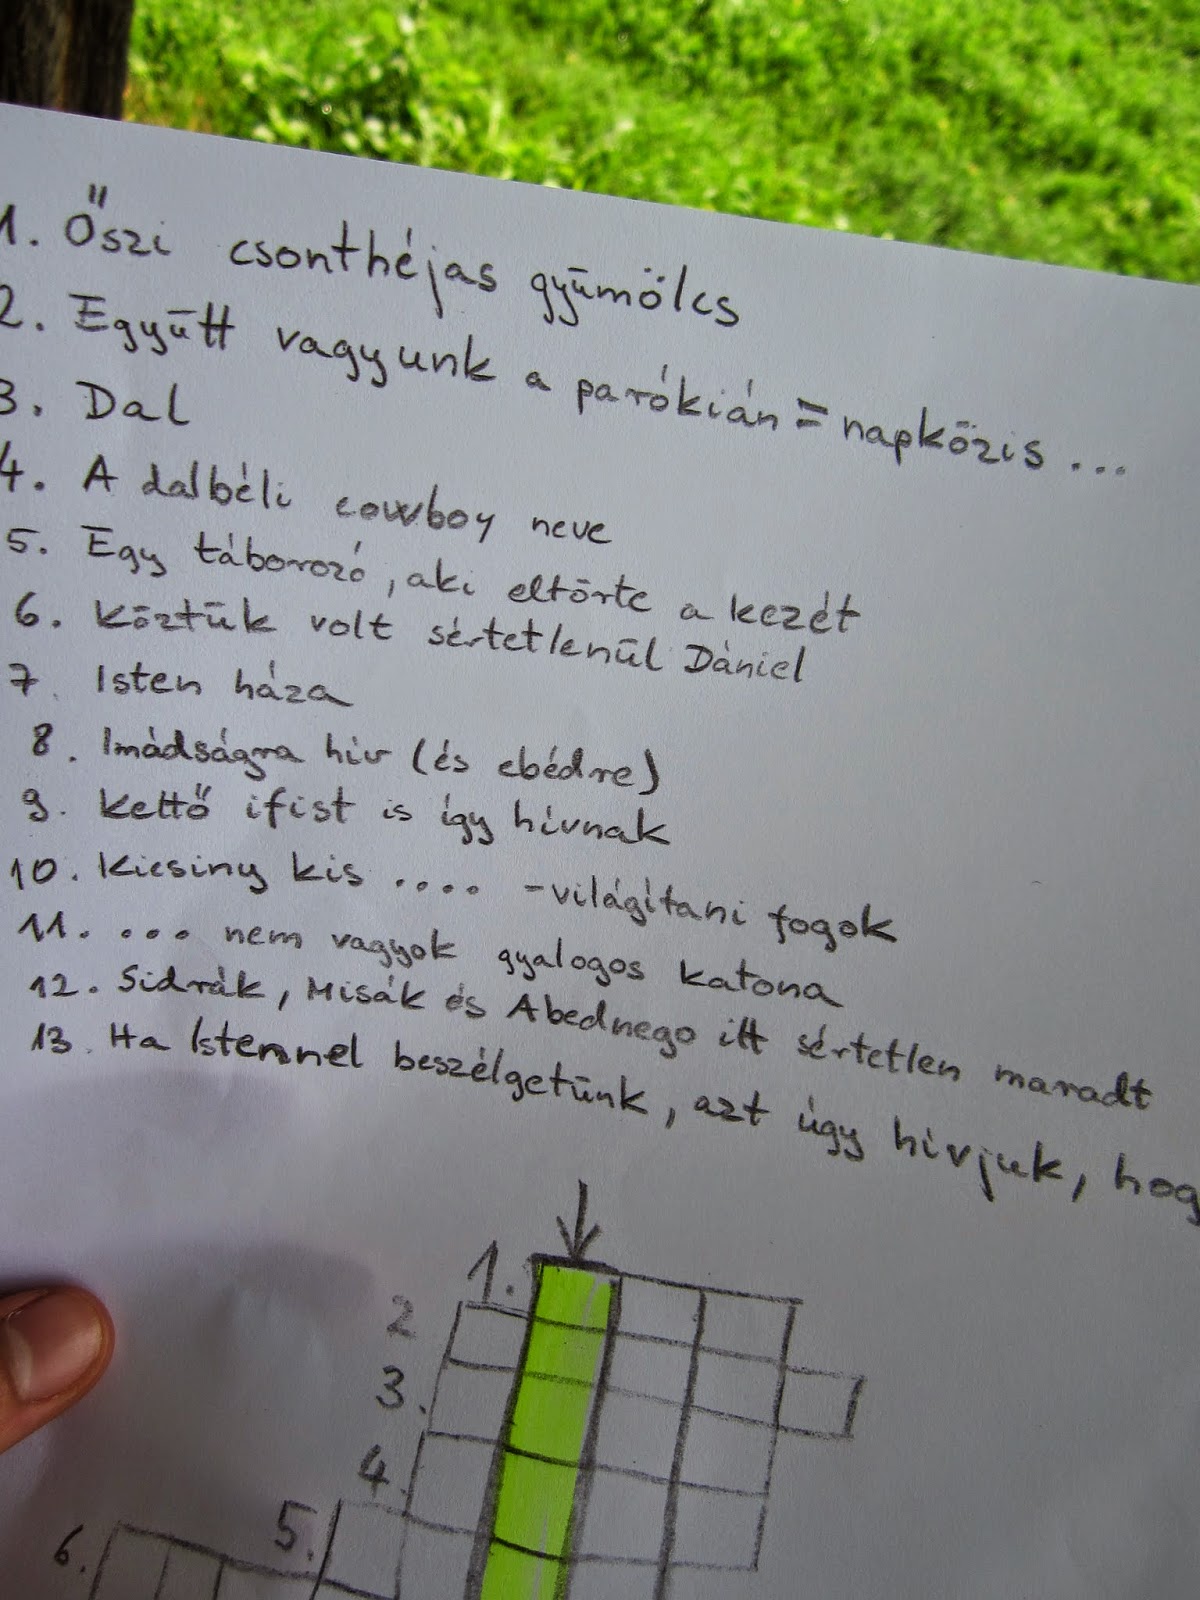 1. Őszi csonthéjas gyümölcs
2. Együtt vagyunk a parókián = napközis ...
3. Dal
4. A dalbéli cowboy neve
5. Egy táborozó, aki eltörte a kezét
6. Köztük volt sértetlenül Dániel
7. Isten háza
8. Imádságra hív (és ebédre)
9. Kettő ifist is így hívnak
10. Kicsiny kis .... - világítani fogok
11. ... nem vagyok gyalogos katona
12. Sidrák, Misák és Abednego itt sértetlen maradt
13. Ha Istennel beszélgetünk, azt úgy hívjuk, hog
1.
2
3.
4.
5.
6.